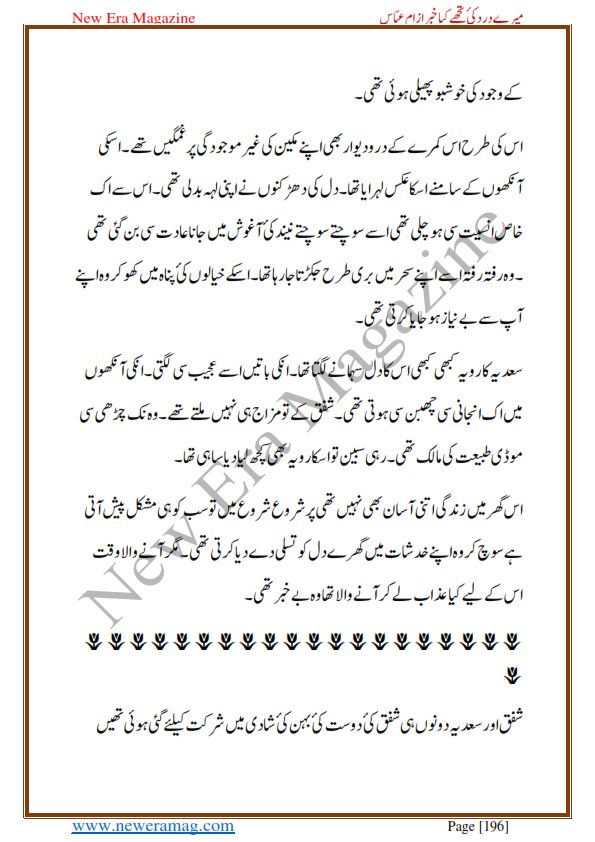 New Era Magazine میرے درد کی تجھے کیا خبر از ام عبّاس
کے وجود کی خوشبو پھیلی ہوئی تھی۔
اس کی طرح اس کمرے کے درودیوار بھی اپنے مکین کی غیر موجودگی پر غمگیں تھے۔ اسکی
آنکھوں کے سامنے اسکا عکس لہرایا تھا۔ دل کی دھڑکنوں نے اپنی لہہ بدلی تھی۔ اس سے اک
خاص انسیت سی ہو چلی تھی اسے سوچتے سوچتے نیند کی آغوش میں جانا عادت سی بن گئی تھی
۔ وہ رفتہ رفتہ اسے اپنے سحر میں بری طرح جکڑتا جا رہا تھا۔ اسکے خیالوں کی پناہ میں کھو کر وہ اپنے
آپ سے بے نیاز ہو جایا کرتی تھی۔
سعدیہ کا رویہ کبھی کبھی اس کا دل سہمانے لگتا تھا۔ انکی باتیں اسے عجیب سی لگتی۔ انکی آنکھوں
میں اک انجانی سی چھبن سی ہوتی تھی۔ شفق کے تو مزاج ہی نہیں ملتے تھے۔ وہ نک چڑھی سی
موڈی طبیعت کی مالک تھی۔ رہی سبین تو اسکا رویہ بھی کچھ لیا دیا سا ہی تھا۔
اس گھر میں زندگی اتنی آسان بھی نہیں تھی پر شروع شروع میں تو سب کو ہی مشکل پیش آتی
ہے سوچ کر وہ اپنے خدشات میں گھرے دل کو تسلی دے دیا کرتی تھی۔ مگر آنے والا وقت
اس کے لیے کیا عذاب لے کر آنے والا تھا وہ بے خبر تھی۔
شفق اور سعدیہ دونوں ہی شفق کی دوست کی بہن کی شادی میں شرکت کیلئے گئی ہوئی تھیں
New Era Magazine
www.neweramag.com Page [196]